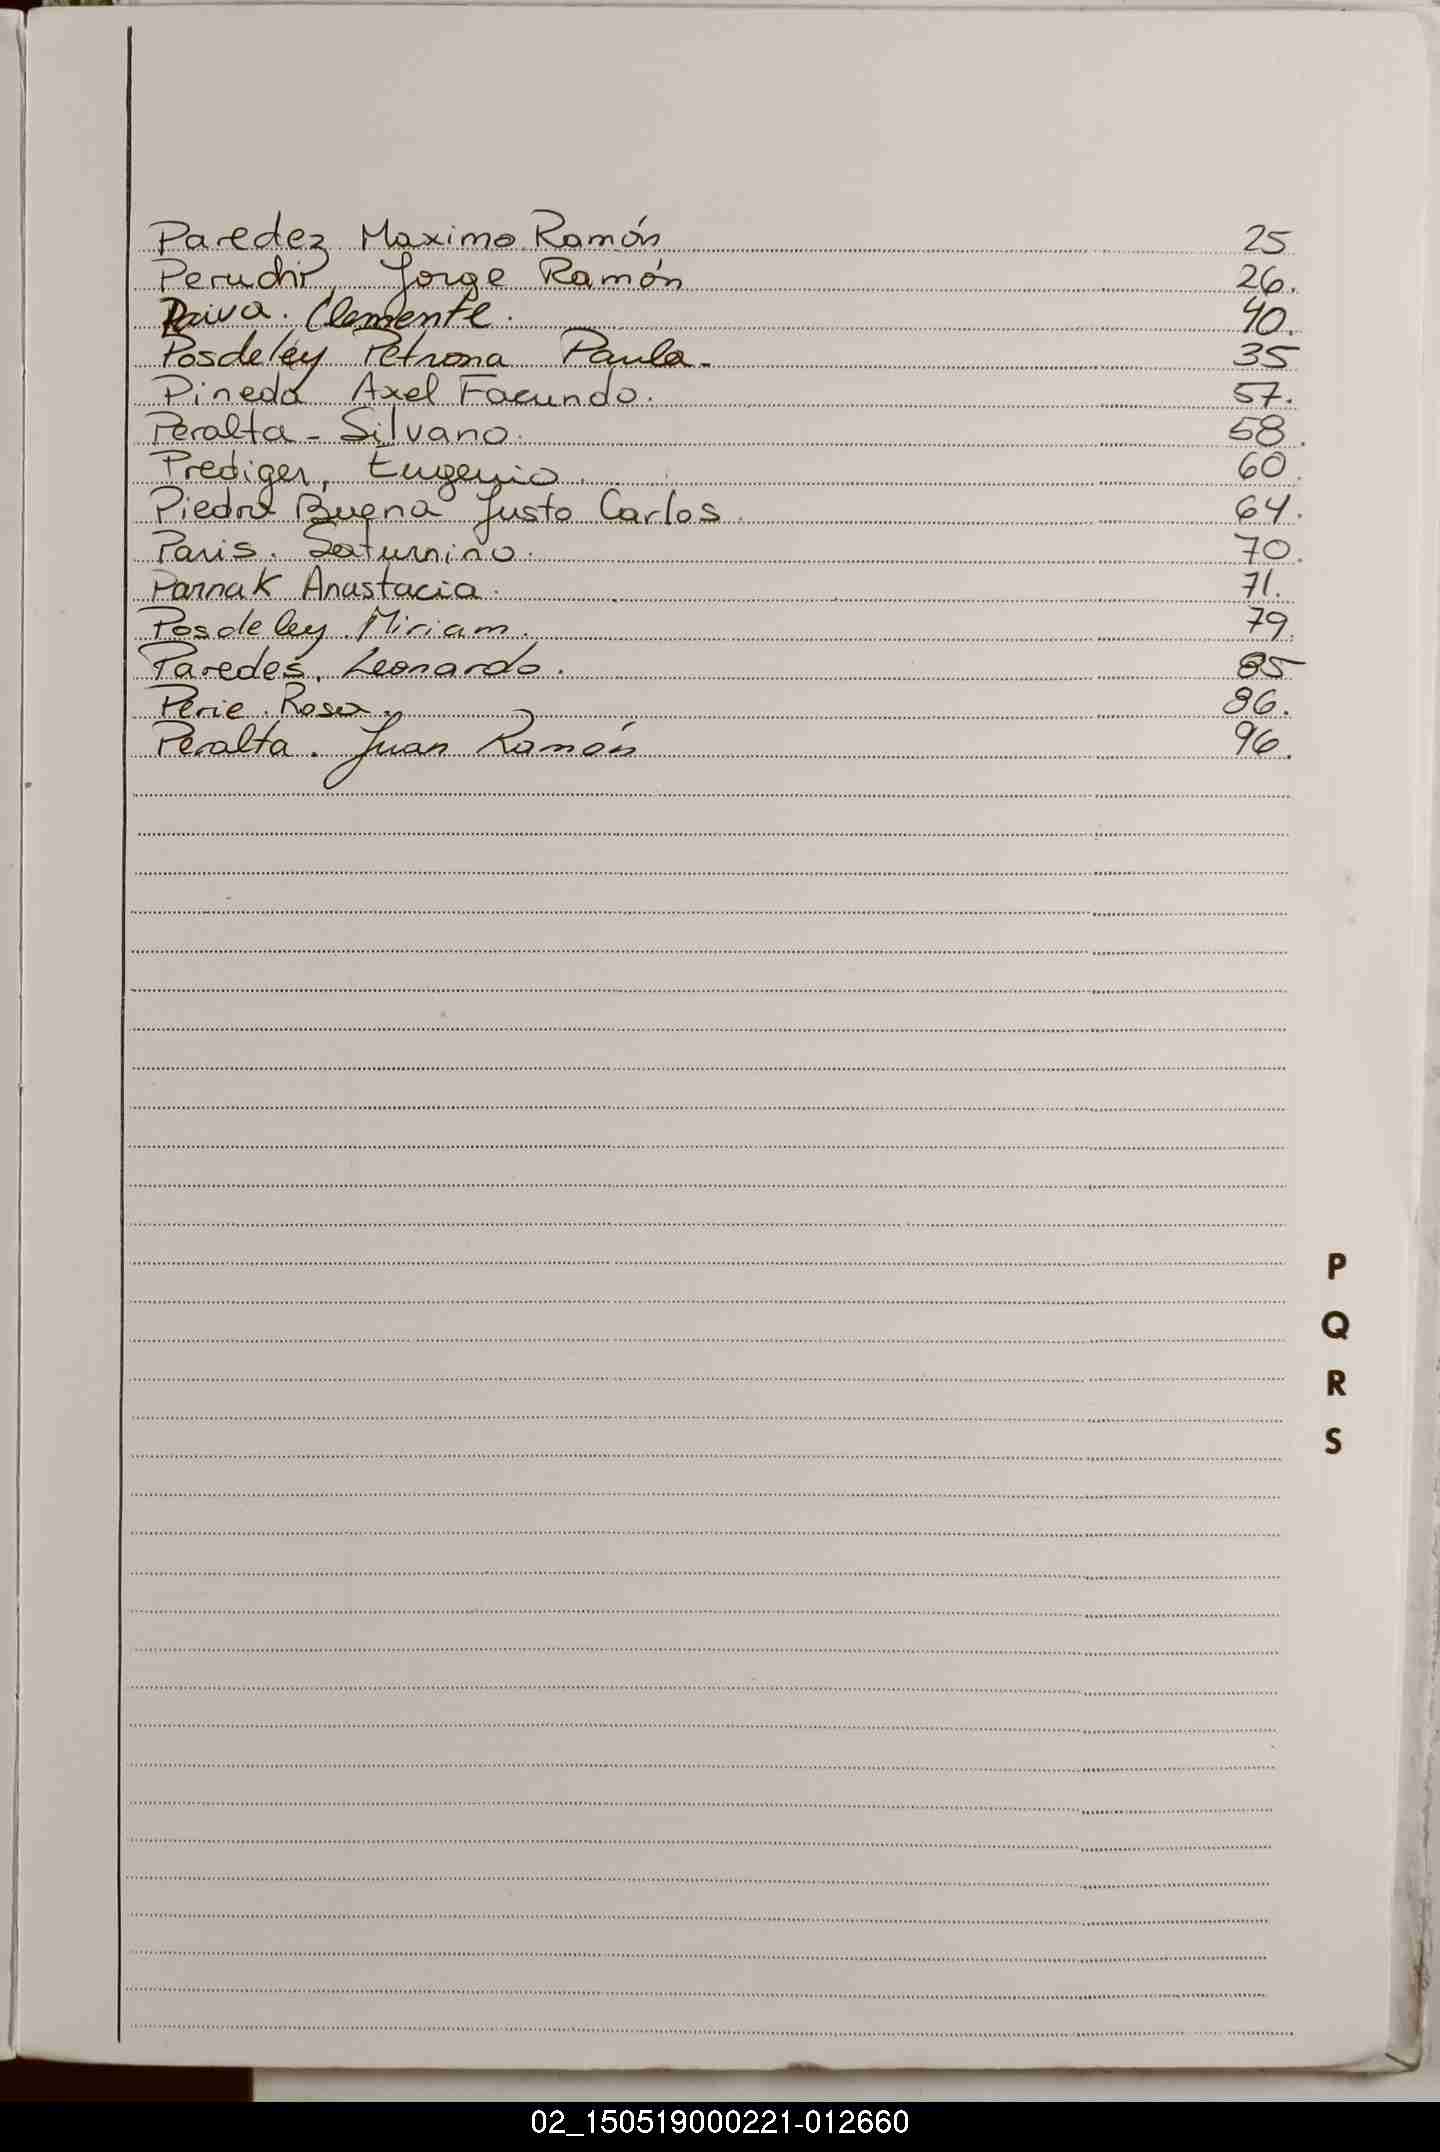 Paredez Maximo Ramón 25
Peruchi, Jorge Ramón 26.
Paiva. Clemente. 40.
Posdeley Petrona Paula. 35
Pineda Axel Facundo. 57.
Peralta - Silvano. 58.
Prediger, Eugenio. 60.
Piedra Buena Justo Carlos. 64.
Paris. Saturnino. 70.
Parnak Anastacia. 71.
Posdeley Miriam. 79.
Paredes, Leonardo. 85
Perie. Rosa. 86.
Peralta. Juan Ramón 96.
P
Q
R
S
02_150519000221-012660